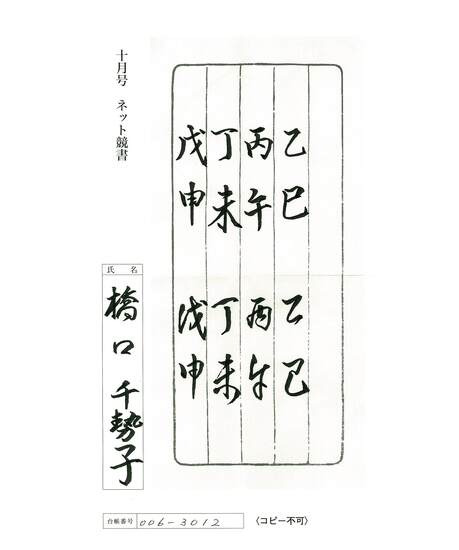 乙巳 乙巳
丙午 丙午
丁未 丁未
戊申 戊申
十月号 ネット競書
氏名
橋口 千勢子
台帳番号 006-3012
〈コピー不可〉